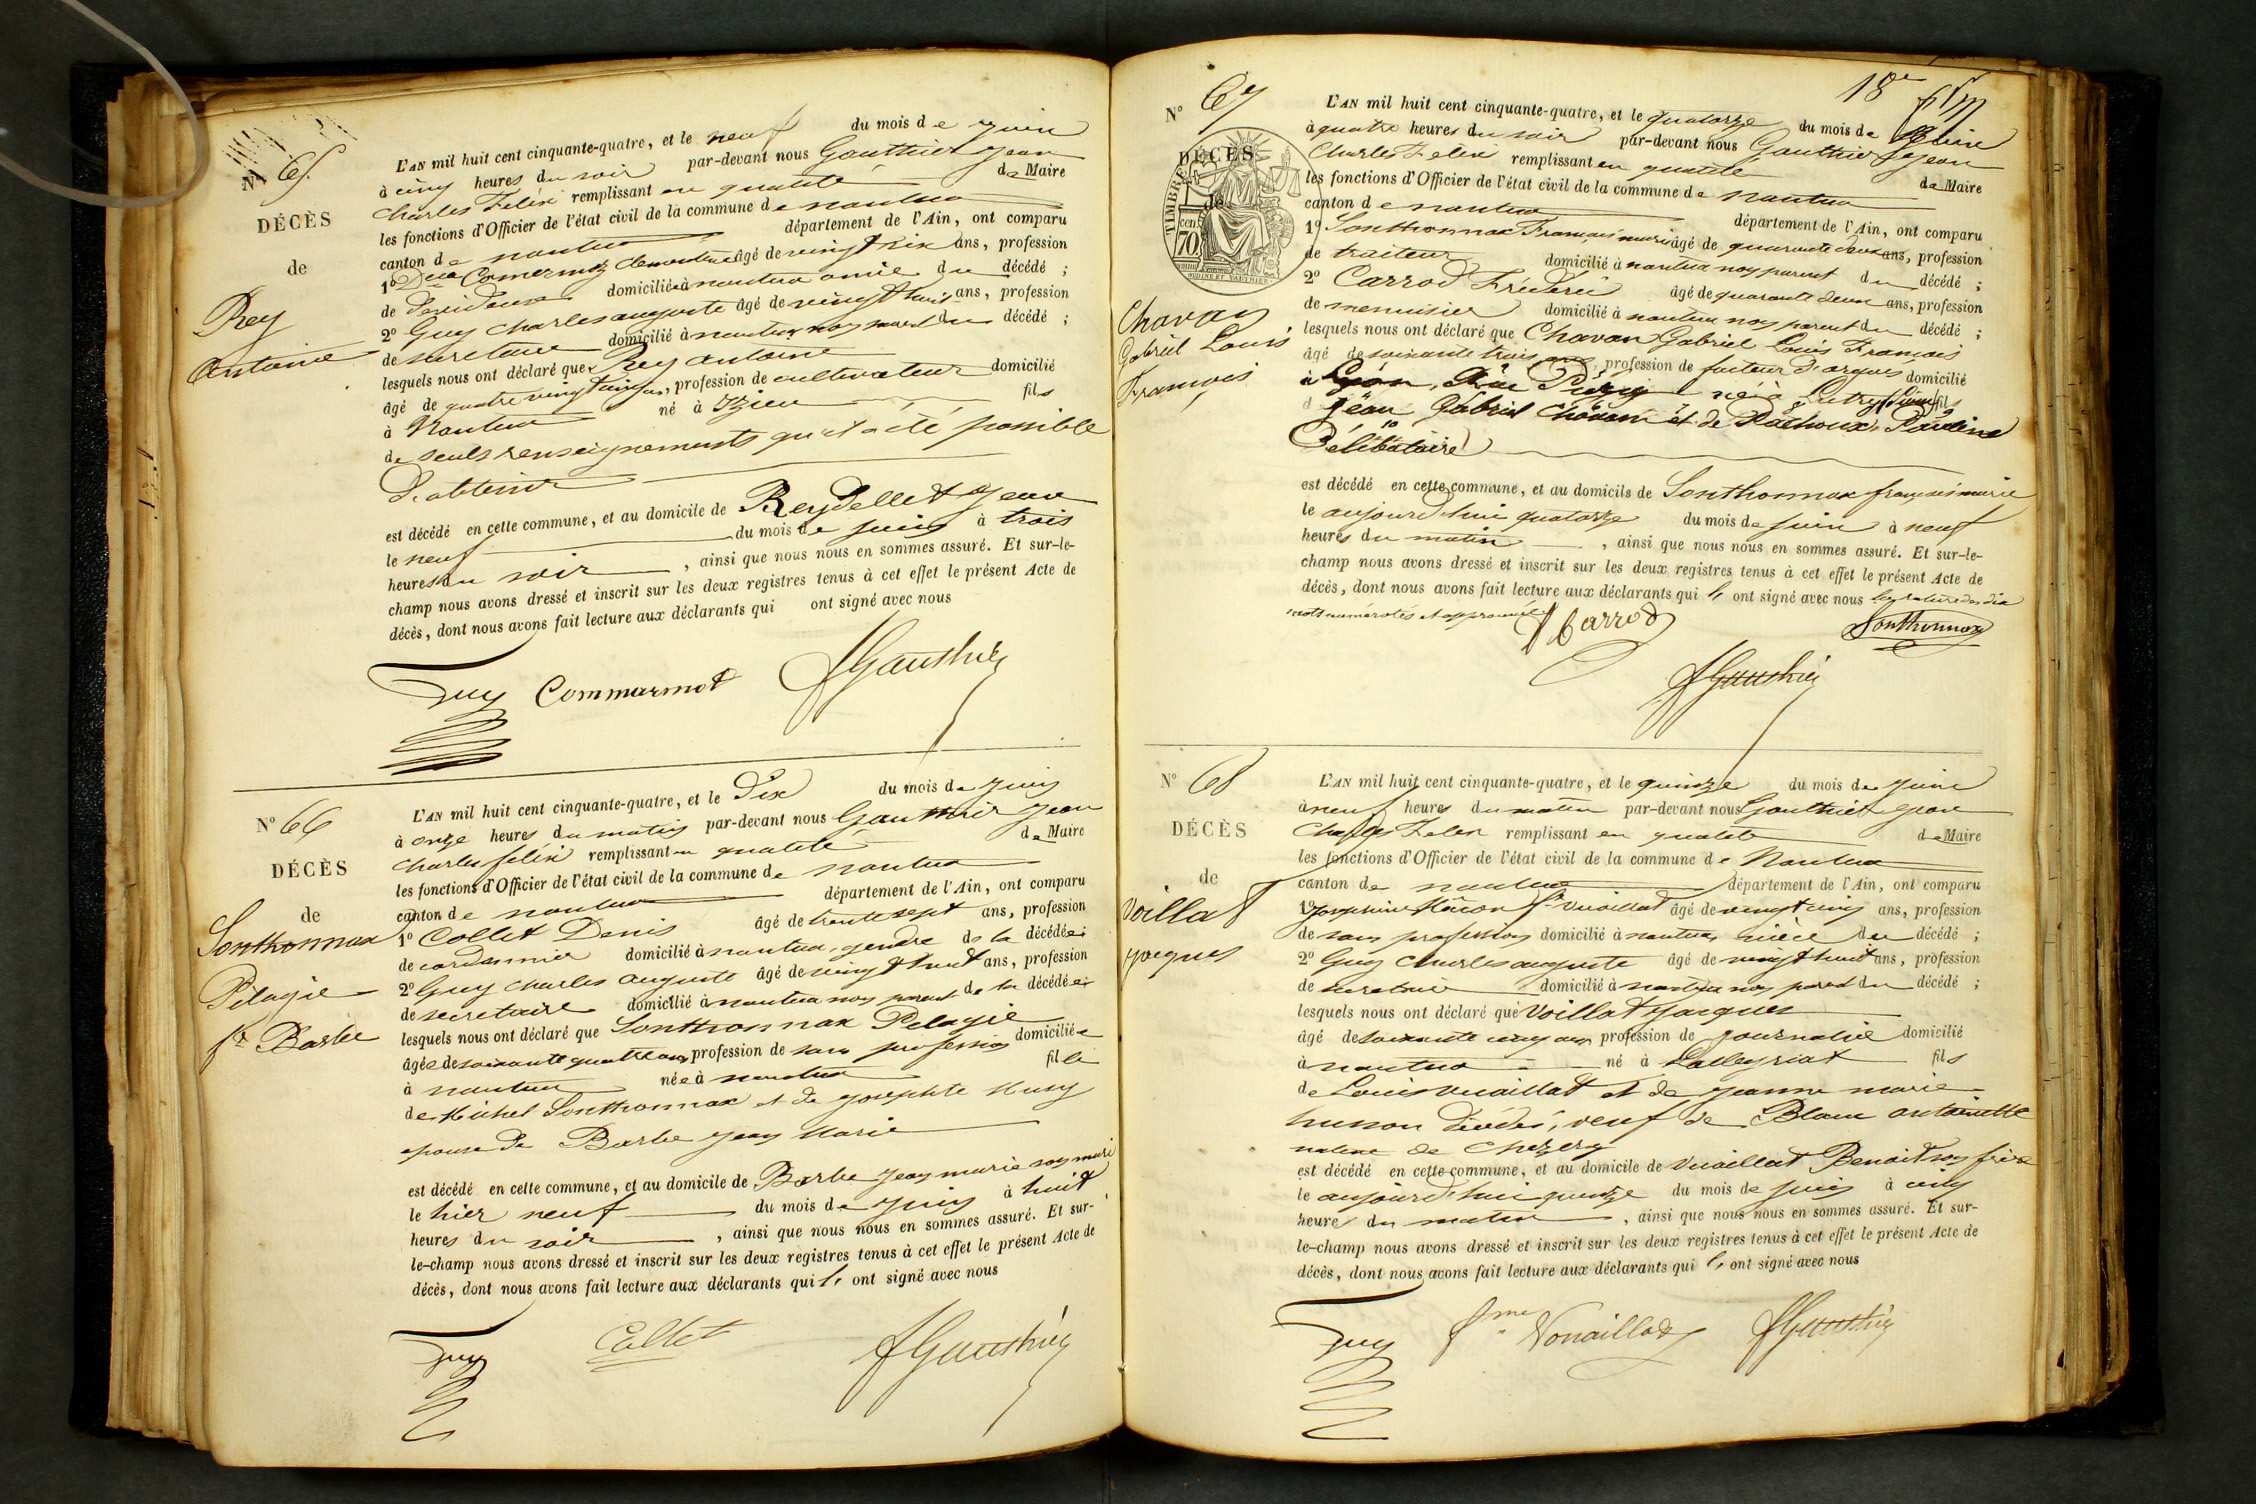 N° 65
DÉCÈS
de
Rey
Antoine
L'AN mil huit cent cinquante-quatre, et le neuf du mois de juin
à cinq heures du soir par-devant nous Gauthier Jean
Charles Félix remplissant en qualité de Maire
les fonctions d'Officier de l'état civil de la commune de nantua
canton de nantua département de l'Ain, ont comparu
1° Delle Clementine âgé de vingt six ans, profession
de domiciliée à nantua amie du décédé ;
2° Guy Charles auguste âgé de vingt huit ans, profession
de secretaire domicilié à nantua non parent du décédé ;
lesquels nous ont déclaré que Rey antoine
âgé de quatre vingt ans, profession de cultivateur domicilié
à Nantua né à Izieu fils
de seuls renseignements qu'il a été possible
D'obtenir
est décédé en cette commune, et au domicile de Reydellet Jean
le neuf du mois de juin à trois
heures du soir , ainsi que nous nous en sommes assuré. Et sur-le-
champ nous avons dressé et inscrit sur les deux registres tenus à cet effet le présent Acte de
décès, dont nous avons fait lecture aux déclarants qui ont signé avec nous
Guy Commarmot fGauthier
N° 66
DÉCÈS
de
Sonthonnax
Pélagie
fe Barbe
L'AN mil huit cent cinquante-quatre, et le Dix du mois de juin
à onze heures du matin par-devant nous Gauthier Jean
Charles félix remplissant en qualité de Maire
les fonctions d'Officier de l'état civil de la commune de nantua
canton de nantua département de l'Ain, ont comparu
1° Collet Denis âgé de trente sept ans, profession
de cordonnier domicilié à nantua, gendre de la décédée
2° Guy Charles auguste âgé de vingt huit ans, profession
de secretaire domicilié à nantua non parent de la décédée
lesquels nous ont déclaré que Sonthonnax Pelagie
âgée de soixante quatre ans profession de sans profession domiciliée
à nantua née à nantua fille
de Michel Sonthonnax et de josephte
epouse de Barbe jean Marie
est décédé en cette commune, et au domicile de Barbe jean marie son mari
le hier neuf du mois de juin à huit
heures du soir , ainsi que nous nous en sommes assuré. Et sur-
le-champ nous avons dressé et inscrit sur les deux registres tenus à cet effet le présent Acte de
décès, dont nous avons fait lecture aux déclarants qui ont signé avec nous
Guy Collet fGauthier
18e
N° 67
DÉCÈS
de
TIMBRE
70 cen.
Chavan
Gabriel Louis
François
L'AN mil huit cent cinquante-quatre, et le quatorze du mois de juin
à quatre heures du soir par-devant nous Gauthier Jean
Charles Felix remplissant en qualité de Maire
les fonctions d'Officier de l'état civil de la commune de nantua
canton de nantua département de l'Ain, ont comparu
1° Sonthonnax François marie âgé de quarante deux ans, profession
de traiteur domicilié à nantua non parent du décédé ;
2° Carrod Fréderic âgé de quarante deux ans, profession
de menuisier domicilié à nantua non parent du décédé ;
lesquels nous ont déclaré que Chavan Gabriel Louis François
âgé de soixante trois ans profession de facteur d'orgues domicilié
à Lyon, Rue né à Lutry fils
de Jean Gabriel Chavan et de Pauline
Célibataire
est décédé en cette commune, et au domicile de Sonthonnax françois marie
le aujourd'hui quatorze du mois de juin à neuf
heures du matin , ainsi que nous nous en sommes assuré. Et sur-le-
champ nous avons dressé et inscrit sur les deux registres tenus à cet effet le présent Acte de
décès, dont nous avons fait lecture aux déclarants qui ont signé avec nous les ratures des dix
mots numérotés et approuvés
Carrod Sonthonnax
fGauthier
N° 68
DÉCÈS
de
Voillat
jacques
L'AN mil huit cent cinquante-quatre, et le quinze du mois de juin
à neuf heures du matin par-devant nous Gauthier jean
Charles Felix remplissant en qualité de Maire
les fonctions d'Officier de l'état civil de la commune de Nantua
canton de nantua département de l'Ain, ont comparu
1° Josephine fe Vuaillat âgé de vingt cinq ans, profession
de sans profession domicilié à nantua, nièce du décédé ;
2° Guy Charles auguste âgé de vingt huit ans, profession
de secretaire domicilié à nantua non parent du décédé ;
lesquels nous ont déclaré que Voillat Jacques
âgé de soixante cinq ans profession de journalier domicilié
à nantua né à Lalleyriat fils
de Louis Vuaillat et de jeanne marie
husson décédés, veuf de Blanc antoinette
native de Chezery
est décédé en cette commune, et au domicile de Vuaillat Benoit son frère
le aujourd'hui quinze du mois de juin à cinq
heures du matin , ainsi que nous nous en sommes assuré. Et sur-
le-champ nous avons dressé et inscrit sur les deux registres tenus à cet effet le présent Acte de
décès, dont nous avons fait lecture aux déclarants qui ont signé avec nous
Guy fme Vouaillat fGauthier